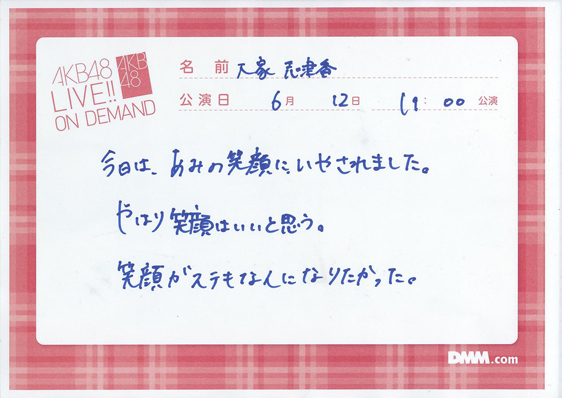 AKB48
LIVE!!
ON DEMAND
AKB
48
名前 大家志津香
公演日 6月 12日 19:00 公演
今日は、あみの笑顔に、いやされました。
やはり笑顔はいいと思う。
笑顔がステもなんになりたかった。
DMM.com